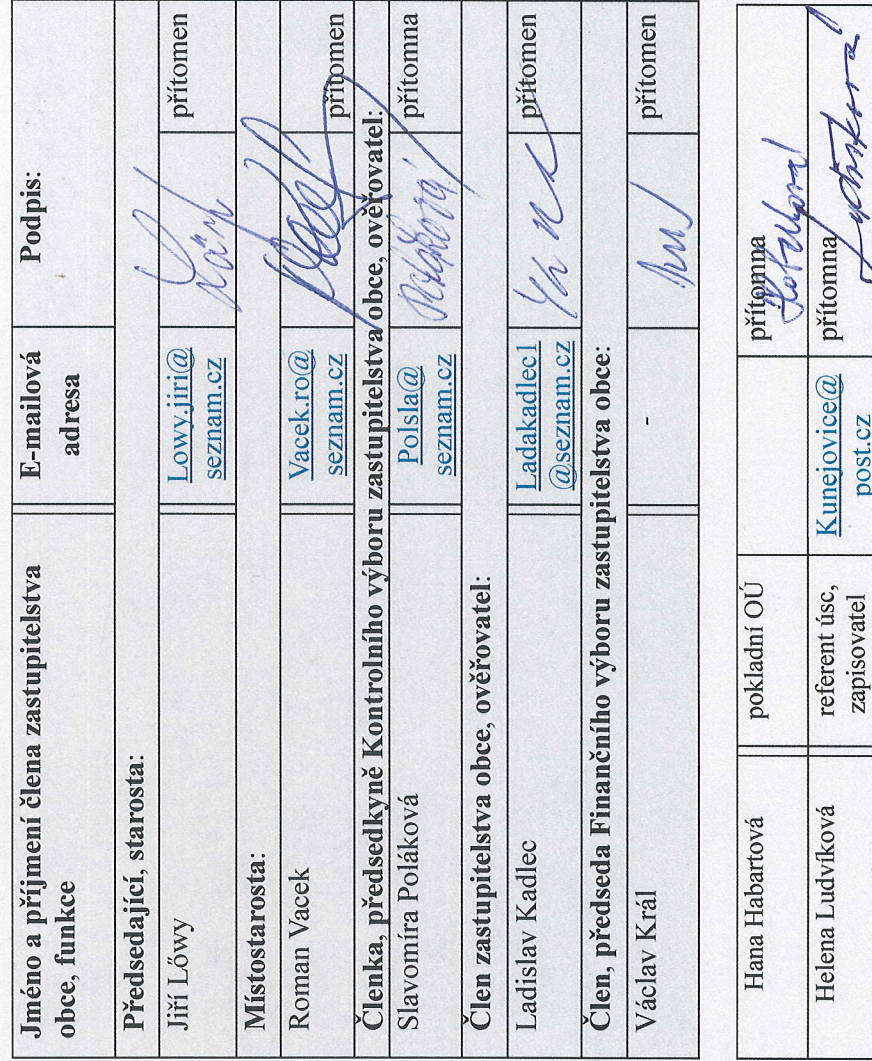 Jméno a příjmení člena zastupitelstva
obce, funkce
E-mailová
adresa
Podpis:
Předsedající, starosta:
Jiří Lőwy
Lowy.jiri@
seznam.cz
přítomen
Místostarosta:
Roman Vacek
Vacek.ro@
seznam.cz
přítomen
Členka, předsedkyně Kontrolního výboru zastupitelstva obce, ověřovatel:
Slavomíra Poláková
Polsla@
seznam.cz
Poláková
přítomna
Člen zastupitelstva obce, ověřovatel:
Ladislav Kadlec
Ladakadlec1
@seznam.cz
přítomen
Člen, předseda Finančního výboru zastupitelstva obce:
Václav Král
-
přítomen
Hana Habartová
pokladní OÚ
přítomna
Helena Ludvíková
referent úsc,
zapisovatel
Kunejovice@
post.cz
přítomna